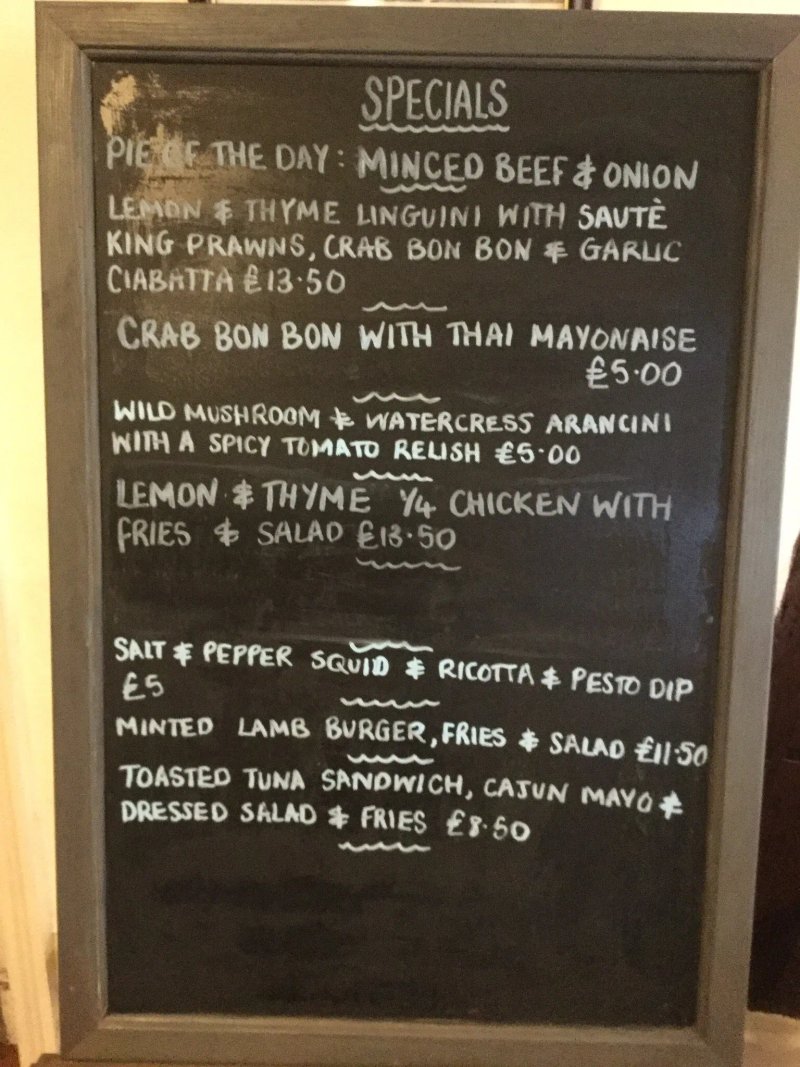 SPECIALS
PIE OF THE DAY: MINCED BEEF & ONION
LEMON & THYME LINGUINI WITH SAUTÈ
KING PRAWNS, CRAB BON BON & GARLIC
CIABATTA £13.50
CRAB BON BON WITH THAI MAYONAISE
£5.00
WILD MUSHROOM & WATERCRESS ARANCINI
WITH A SPICY TOMATO RELISH £5.00
LEMON & THYME 1/4 CHICKEN WITH
FRIES & SALAD £13.50
SALT & PEPPER SQUID & RICOTTA & PESTO DIP
£5
MINTED LAMB BURGER, FRIES & SALAD £11.50
TOASTED TUNA SANDWICH, CAJUN MAYO &
DRESSED SALAD & FRIES £8.50